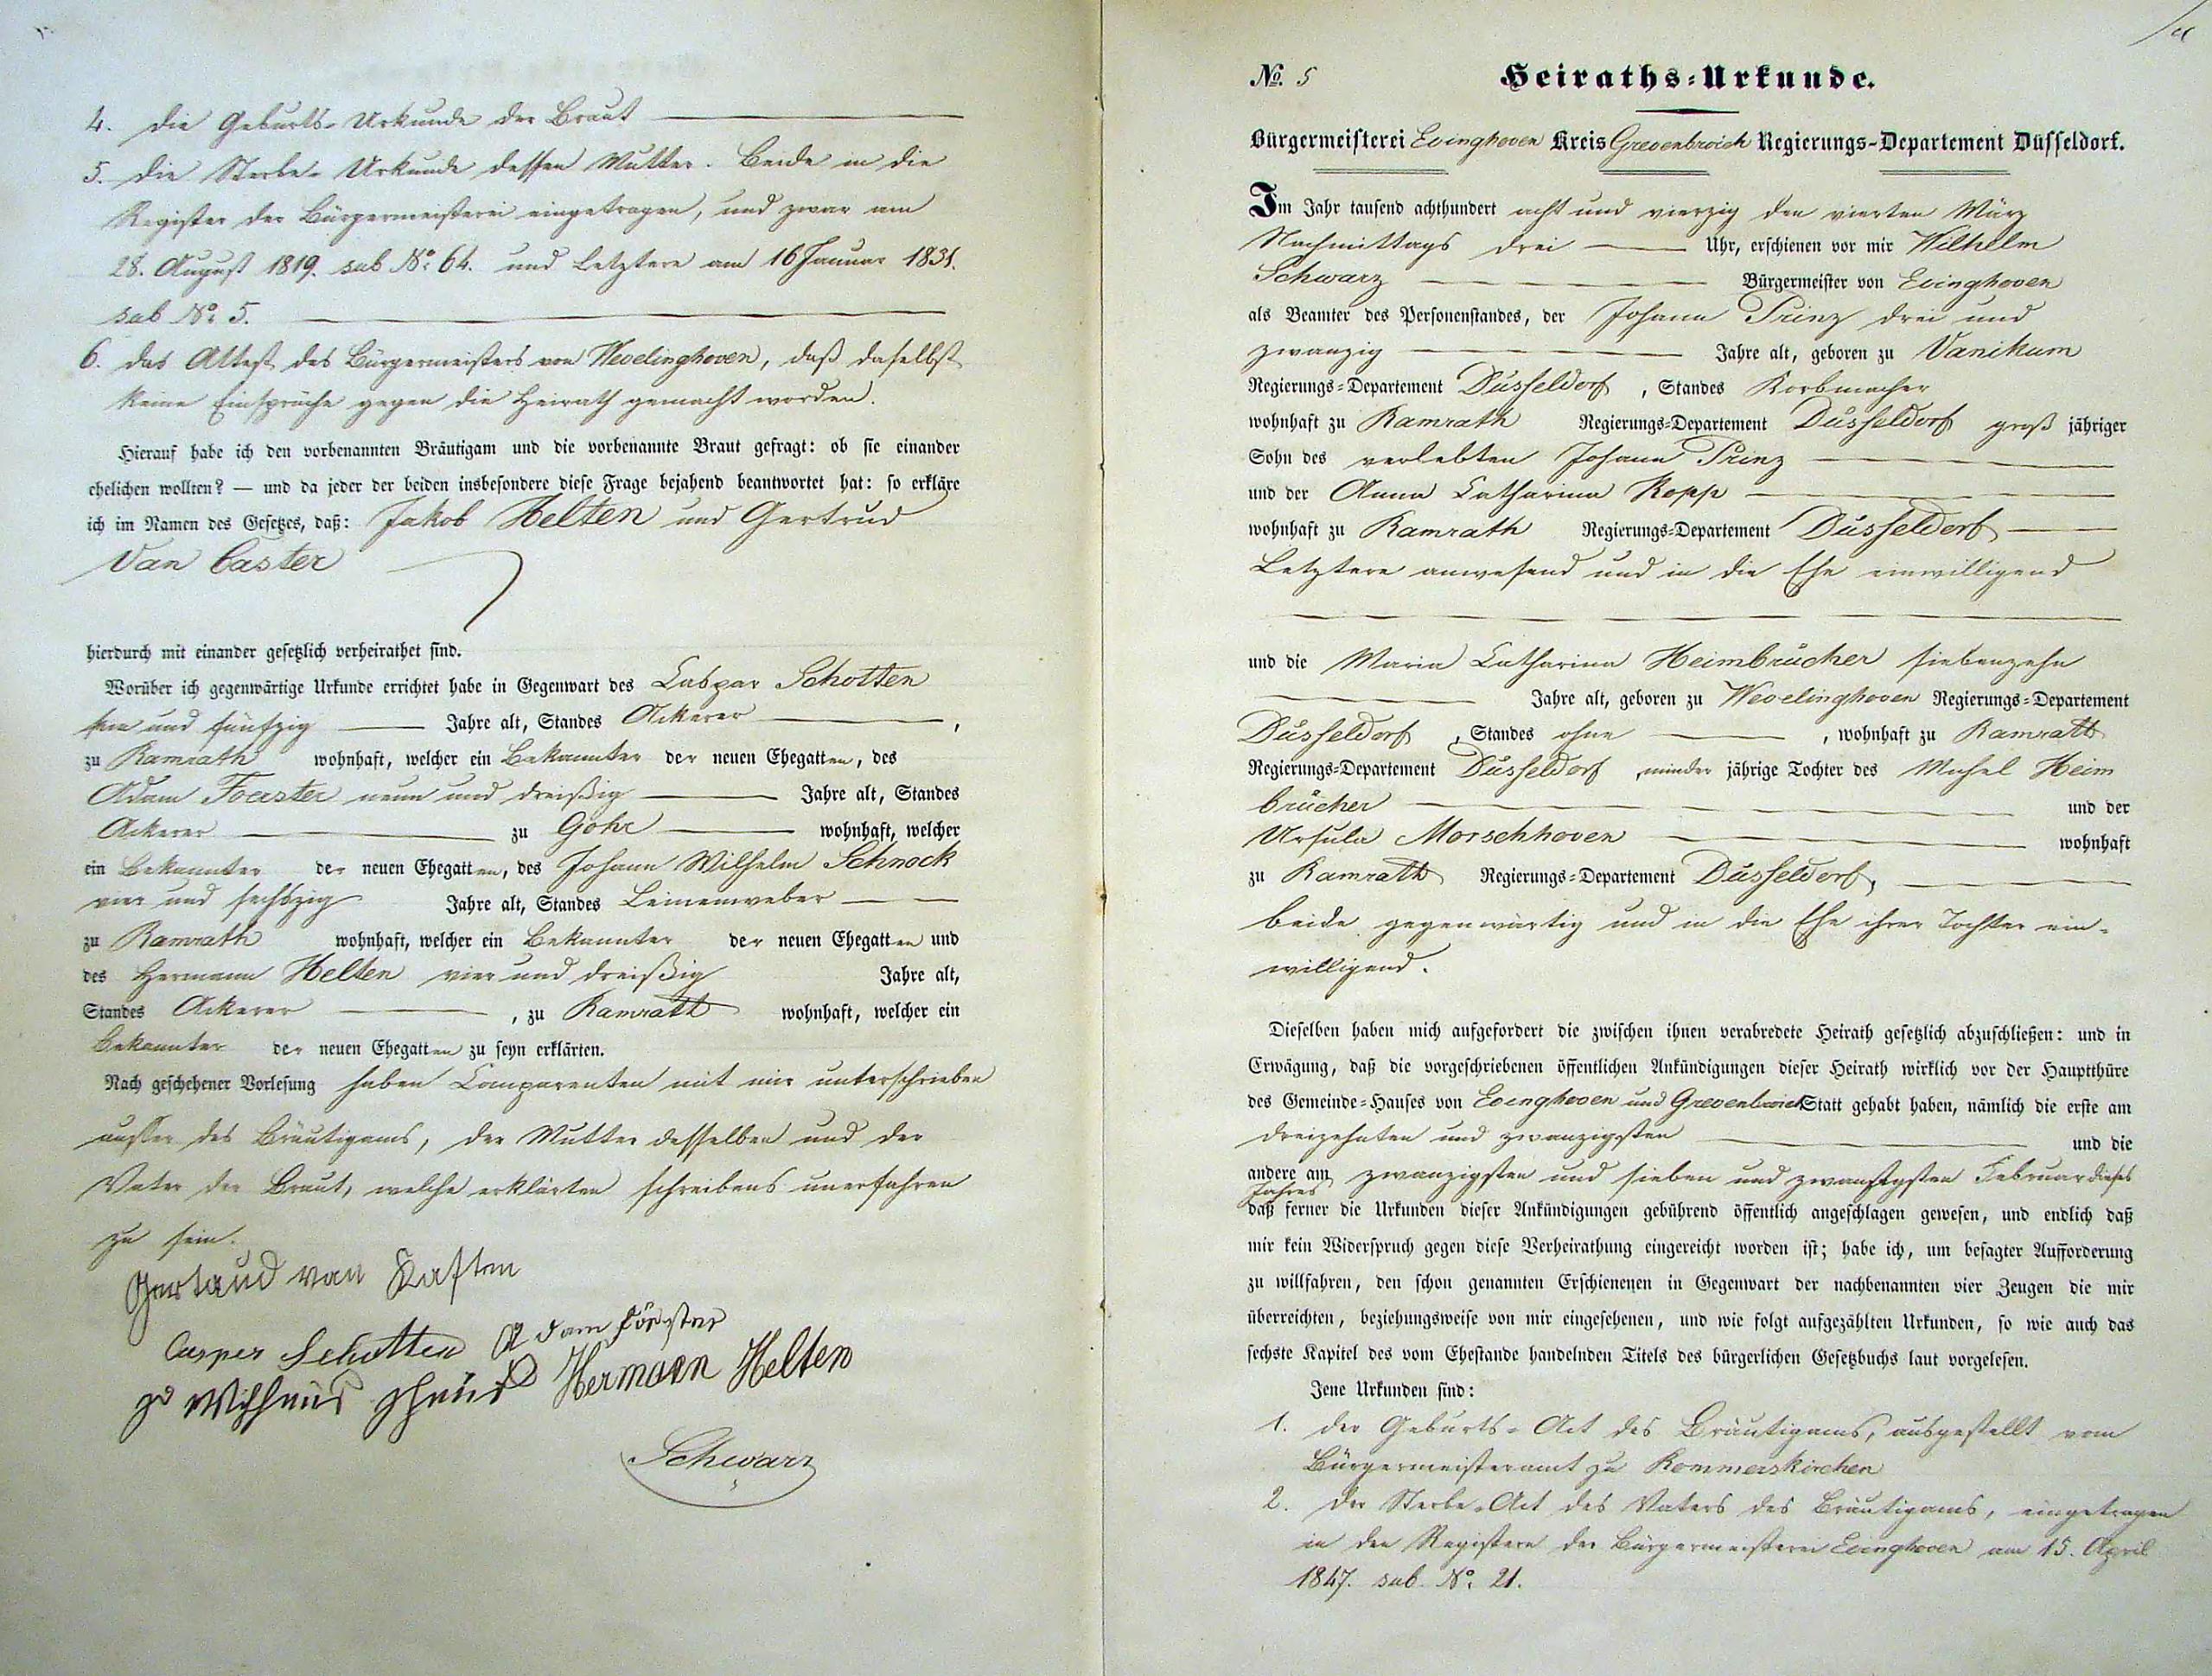 4. die Geburts-Urkunde der Braut
5. die Sterbe-Urkunde dessen Mutter. Beide in die
Register der Bürgermeisterei eingetragen, und zwar am
28. August 1819. sub No. 64. und Letztere am 16 Januar 1831.
sub No. 5.
6. das Attest des Bürgermeisters von Wevelinghoven, daß daselbst
keine Einsprüche gegen die Heirath gemacht worden.
Hierauf habe ich den vorbenannten Bräutigam und die vorbenannte Braut gefragt: ob sie einander
ehelichen wollten? — und da jeder der beiden insbesondere diese Frage bejahend beantwortet hat: so erkläre
ich im Namen des Gesetzes, daß: Jakob Helten und Gertrud
Van Caster
hierdurch mit einander gesetzlich verheirathet sind.
Worüber ich gegenwärtige Urkunde errichtet habe in Gegenwart des Caspar Schotten
und fünfzig Jahre alt, Standes Ackerer,
zu Ramrath wohnhaft, welcher ein Bekannter der neuen Ehegatten, des
Adam Foerster neun und dreißig Jahre alt, Standes
Ackerer zu Gohr wohnhaft, welcher
ein Bekannter der neuen Ehegatten, des Johann Wilhelm Schnock
vier und sechszig Jahre alt, Standes Leinenweber
zu Ramrath wohnhaft, welcher ein Bekannter der neuen Ehegatten und
des Hermann Helten vier und dreißig Jahre alt,
Standes Ackerer, zu Ramrath wohnhaft, welcher ein
Bekannter der neuen Ehegatten zu seyn erklärten.
Nach geschehener Vorlesung haben Comparenten mit mir unterschrieben
ausser des Bräutigams, der Mutter desselben und der
Vater der Braut, welche erklärten schreibens unerfahren
zu sein.
Gertrud van Kasten
Casper Schotten Adam Förster
Hermann Helten
Schwarz
No. 5 Heiraths-Urkunde.
Bürgermeisterei Evinghoven Kreis Grevenbroich Regierungs-Departement Düsseldorf.
Im Jahr tausend achthundert acht und vierzig den vierten März
Nachmittags drei Uhr, erschienen vor mir Wilhelm
Schwarz Bürgermeister von Evinghoven
als Beamter des Personenstandes, der Johann Prinz drei und
zwanzig Jahre alt, geboren zu Vanikum
Regierungs-Departement Düsseldorf, Standes Korbmacher
wohnhaft zu Ramrath Regierungs-Departement Düsseldorf groß jähriger
Sohn des verlebten Johann Prinz
und der Anna Catharina Kopp
wohnhaft zu Ramrath Regierungs-Departement Düsseldorf
Letztere anwesend und in die Ehe einwilligend
und die Maria Catharina Heimbrücher siebenzehn
Jahre alt, geboren zu Wevelinghoven Regierungs-Departement
Düsseldorf, Standes ohne, wohnhaft zu Ramrath
Regierungs-Departement Düsseldorf, minder jährige Tochter des Michel Heim
brücher und der
Ursula Morschhoven wohnhaft
zu Ramrath Regierungs-Departement Düsseldorf,
beide gegenwärtig und in die Ehe ihrer Tochter ein-
willigend.
Dieselben haben mich aufgefordert die zwischen ihnen verabredete Heirath gesetzlich abzuschließen: und in
Erwägung, daß die vorgeschriebenen öffentlichen Ankündigungen dieser Heirath wirklich vor der Hauptthüre
des Gemeinde-Hauses von Evinghoven und Grevenbroich Statt gehabt haben, nämlich die erste am
dreizehnten und zwanzigsten und die
andere am zwanzigsten und sieben und zwanzigsten Februar dieses
Jahres
daß ferner die Urkunden dieser Ankündigungen gebührend öffentlich angeschlagen gewesen, und endlich daß
mir kein Widerspruch gegen diese Verheirathung eingereicht worden ist; habe ich, um besagter Aufforderung
zu willfahren, den schon genannten Erschienenen in Gegenwart der nachbenannten vier Zeugen die mir
überreichten, beziehungsweise von mir eingesehenen, und wie folgt aufgezählten Urkunden, so wie auch das
sechste Kapitel des vom Ehestande handelnden Titels des bürgerlichen Gesetzbuchs laut vorgelesen.
Jene Urkunden sind:
1. der Geburts-Act des Bräutigams, ausgestellt vom
Bürgermeisteramt zu Rommerskirchen
2. der Sterbe-Act des Vaters des Bräutigams, eingetragen
in den Registern der Bürgermeisterei Evinghoven am 15. April
1847. sub No. 21.